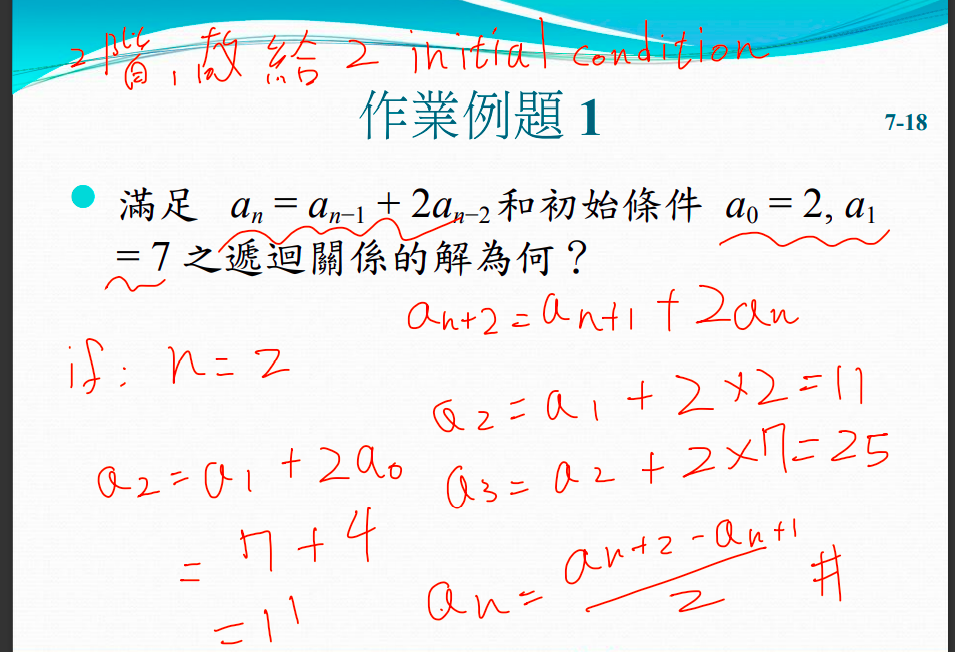 2階,故給 2 initial condition
作業例題 1
7-18
滿足 aₙ = aₙ₋₁ + 2aₙ₋₂ 和初始條件 a₀ = 2, a₁
= 7 之遞迴關係的解為何？
aₙ₊₂ = aₙ₊₁ + 2aₙ
if: n = 2
a₂ = a₁ + 2×2 = 11
a₂ = a₁ + 2a₀
a₃ = a₂ + 2×7 = 25
= 7 + 4
aₙ = (aₙ₊₂ - aₙ₊₁)/2 #
= 11